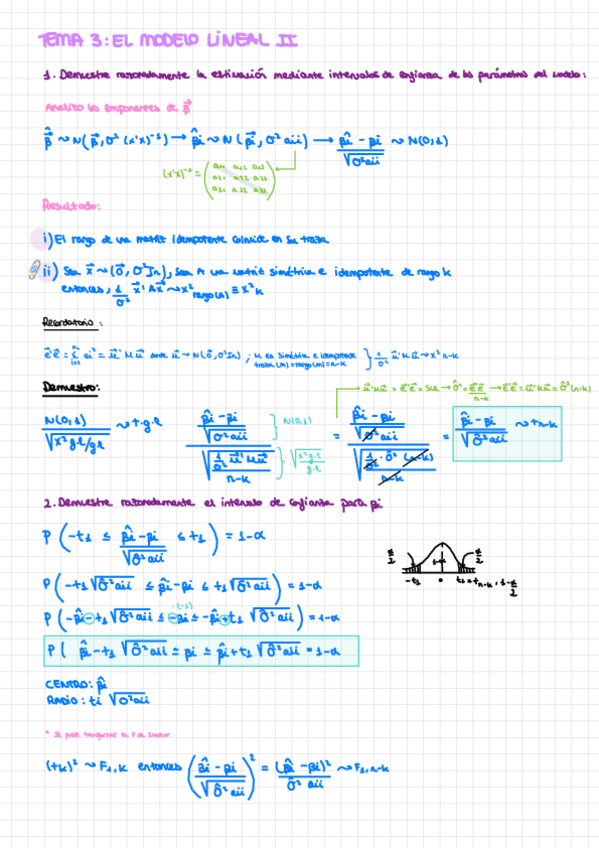 TEMA 3: EL MODELO LINEAL II
1. Demuestre razonadamente la estimación mediante intervalos de confianza de los parámetros del modelo:
Analizo los componentes de β⃗
β̂⃗ ~ N(β⃗, σ² (x'x)⁻¹) → β̂i ~ N(βi, σ² aii) → (β̂i − βi) / √(σ² aii) ~ N(0,1)
(x'x)⁻¹ = (a11 a12 a13
a21 a22 a23
a31 a32 a33)
Resultado:
i) El rango de una matriz idempotente coincide en su traza
ii) Sea x⃗ ~ (0⃗, σ²In), sea A una matriz simétrica e idempotente de rango k
entonces, 1/σ² x⃗' A x⃗ ~ x² rango(A) ≡ x² k
Recordatorio:
e⃗'e⃗ = Σ ei² = u⃗' M u⃗ donde u⃗ ~ N(0⃗, σ²In) ; M es simétrica e idempotente
traza(M) = rango(M) = n-k } 1/σ² u⃗' M u⃗ ~ x² n-k
Demuestro:
u⃗'Mu⃗ = e⃗'e⃗ = SCR → σ̂² = e⃗'e⃗ / n-k → e⃗'e⃗ = u⃗'Mu⃗ = σ̂² (n-k)
N(0,1) / √(x² g.l / g.l) ~ t g.l
((β̂i − βi) / √(σ² aii)) / √((1/σ² u⃗' M u⃗) / n-k) } N(0,1) } √(x² g.l / g.l) = ((β̂i − βi) / √(σ² aii)) / √((1/σ² · σ̂² (n-k)) / n-k) = (β̂i − βi) / √(σ̂² aii) ~ t n-k
2. Demuestre razonadamente el intervalo de confianza para βi
P ( -t1 ≤ (β̂i − βi) / √(σ̂² aii) ≤ t1 ) = 1-α
α/2 1-α α/2
-t1 0 t1 = t n-k, 1-α/2
P ( -t1 √(σ̂² aii) ≤ β̂i − βi ≤ t1 √(σ̂² aii) ) = 1-α
·(-1)
P ( -β̂i − t1 √(σ̂² aii) ≤ -βi ≤ -β̂i + t1 √(σ̂² aii) ) = 1-α
P ( β̂i − t1 √(σ̂² aii) ≤ βi ≤ β̂i + t1 √(σ̂² aii) = 1-α
CENTRO: β̂i
RADIO: ti √(σ̂² aii)
(tk)² ~ F1,k entonces ((β̂i − βi) / √(σ̂² aii))² = (β̂i − βi)² / σ̂² aii ~ F1, n-k